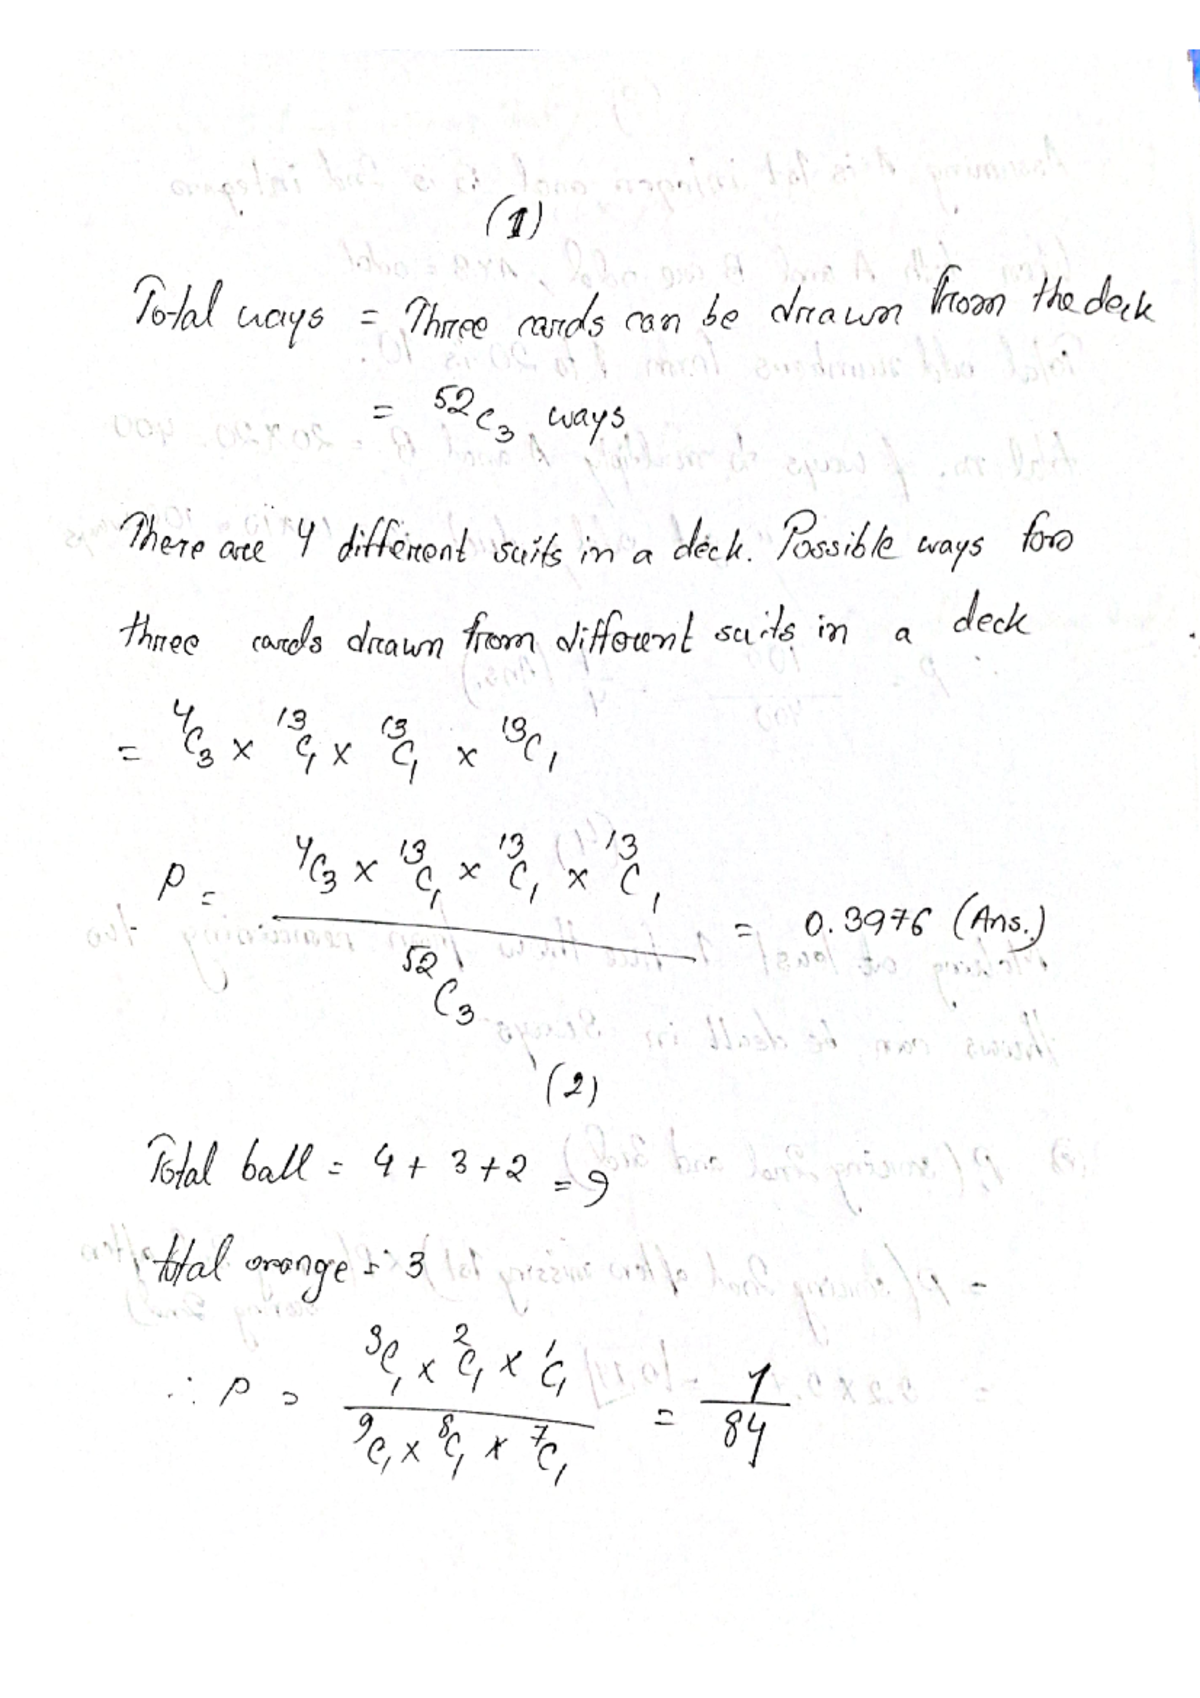 (1)
Total ways = Three cards can be drawn from the deck
= ⁵²C₃ ways
There are 4 different suits in a deck. Possible ways for
three cards drawn from different suits in a deck
= ⁴C₃ × ¹³C₁ × ¹³C₁ × ¹³C₁
P = ⁴C₃ × ¹³C₁ × ¹³C₁ × ¹³C₁ / ⁵²C₃ = 0.3976 (Ans.)
(2)
Total ball = 4 + 3 + 2 = 9
total orange = 3
∴ P = ³C₁ × ²C₁ × ¹C₁ / ⁹C₁ × ⁸C₁ × ⁷C₁ = 1/84